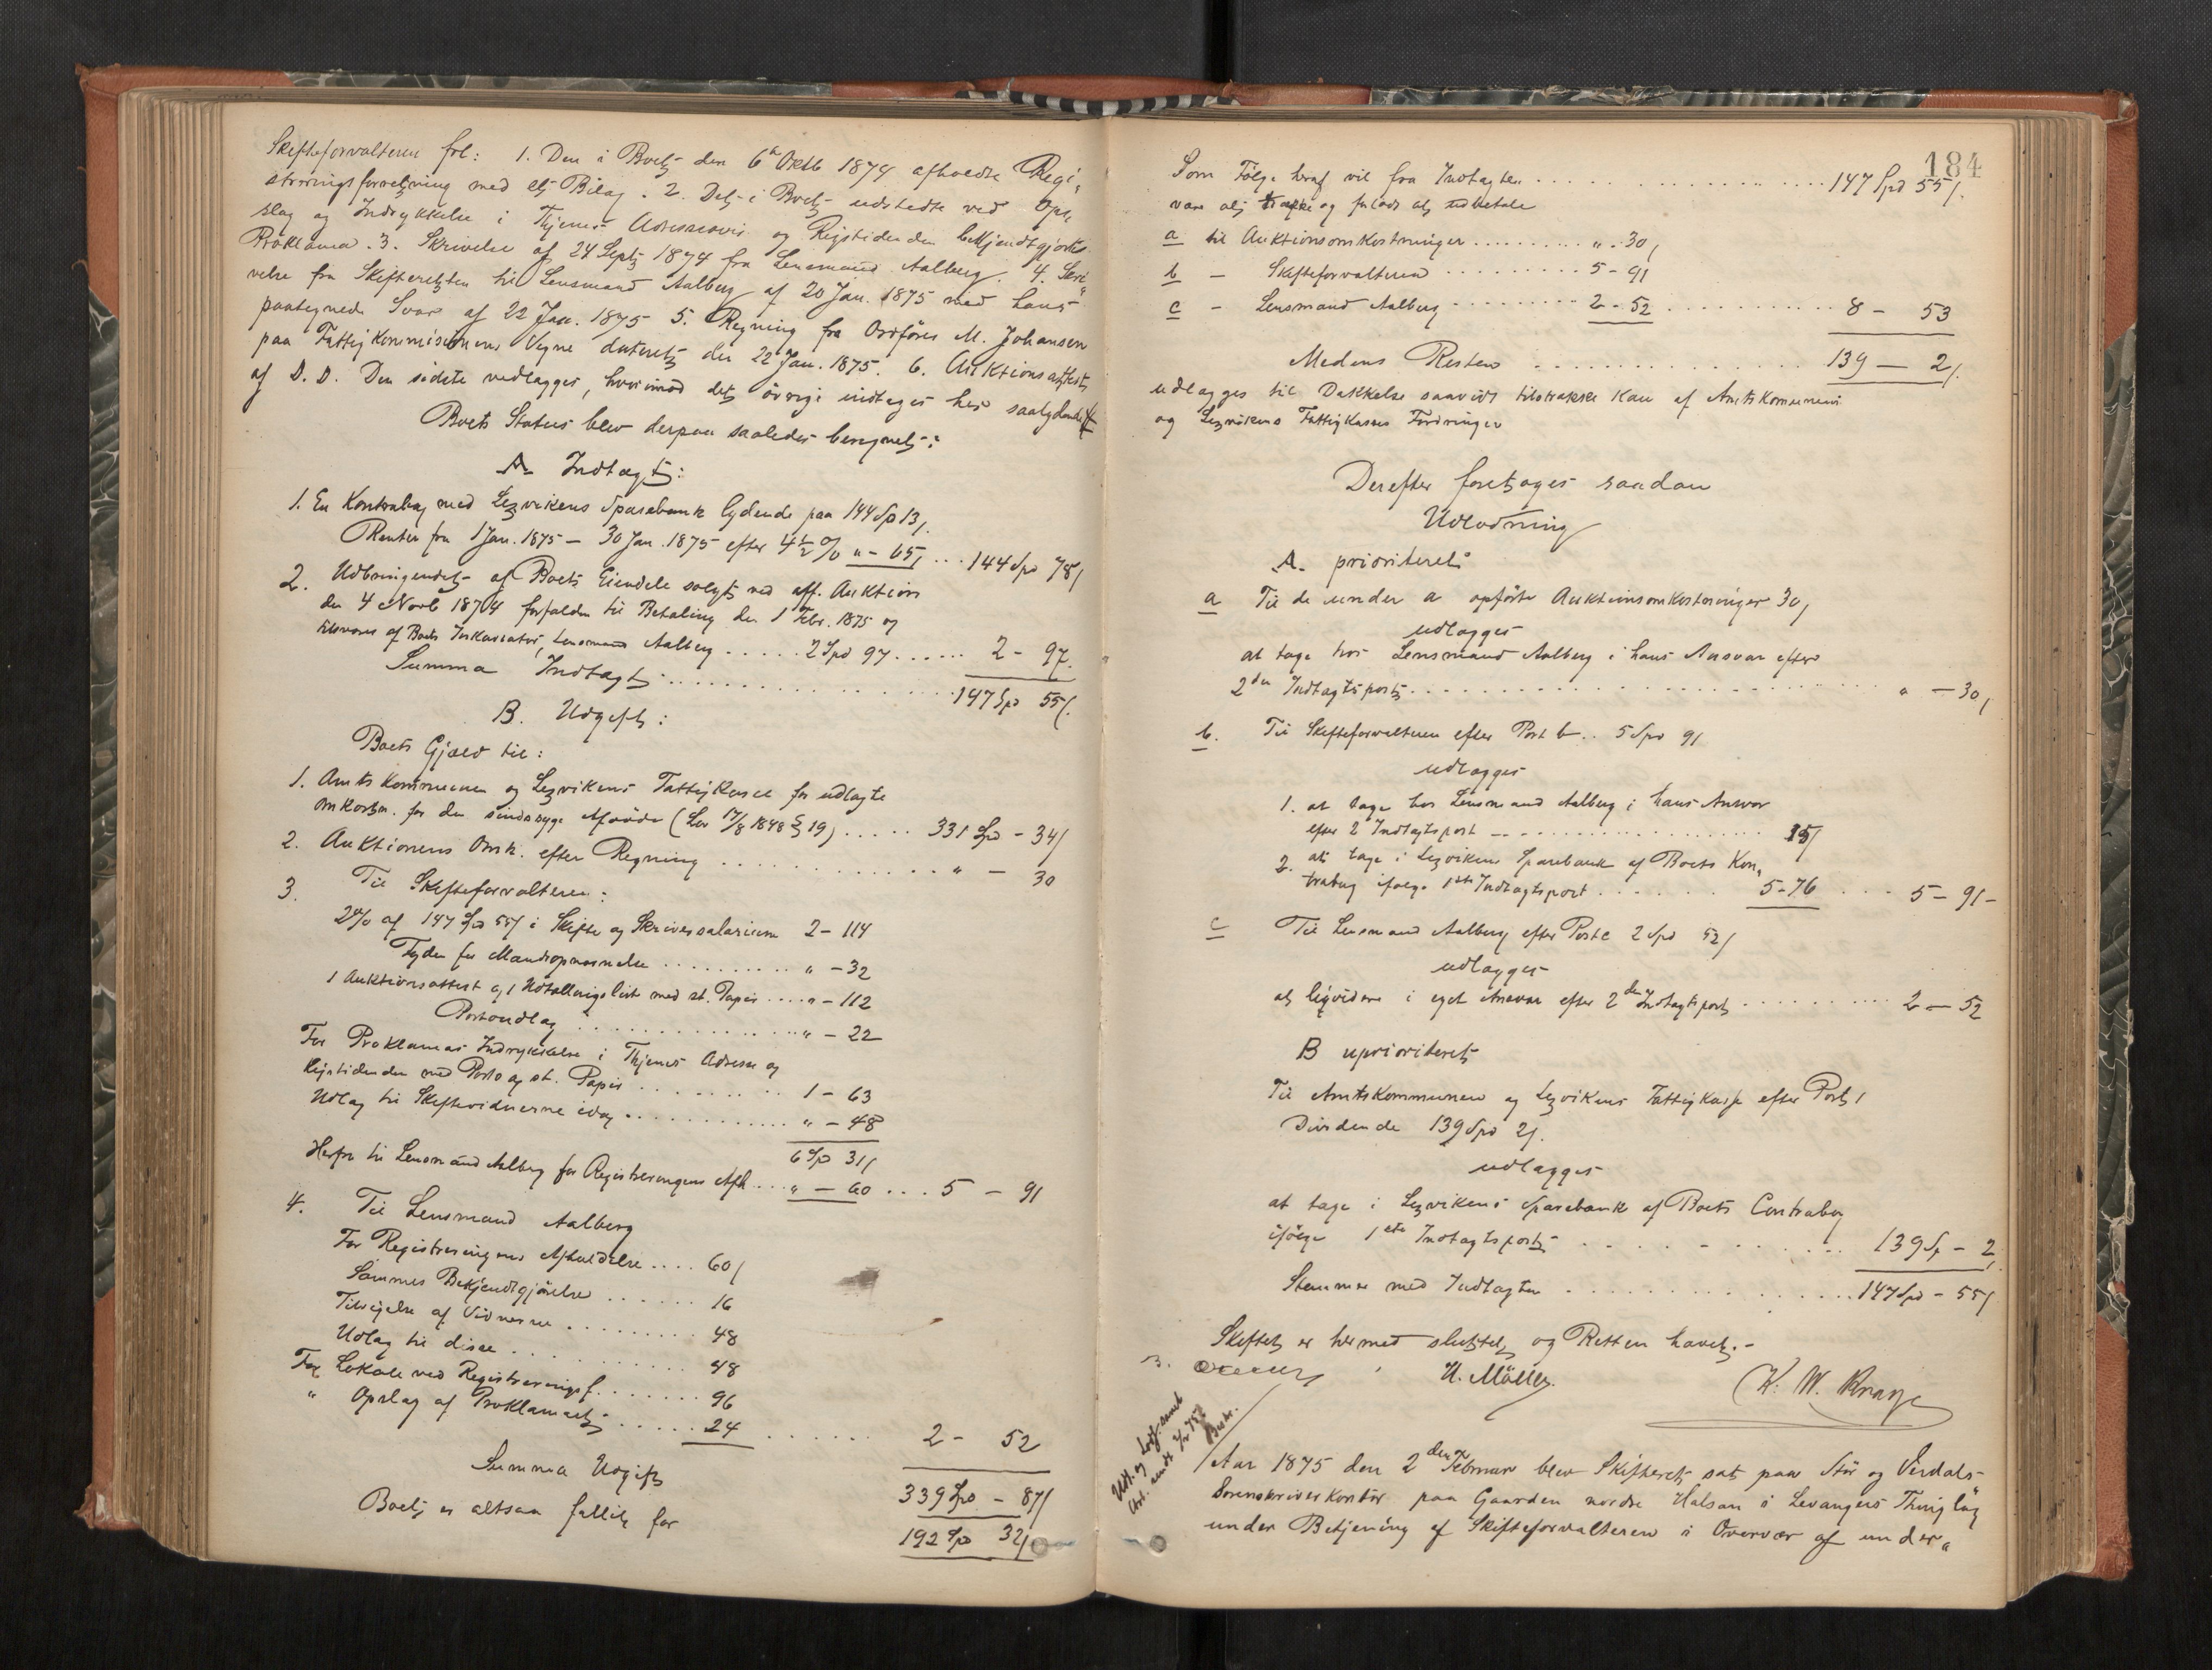 Skifteforvalteren frl: 1. Den i Boet den 6te Oktb 1874 afholdte Regi„
streringsforretning med et Bilag. 2. Det i Boet udstedte ved Op„
slag og Indrykkelse i Thjems Adresseavis og Rigstidenden bekjendtgjorte
Proklama. 3. Skrivelse af 24 Septb 1874 fra Lensmand Aalberg. 4. Skri„
velse fra Skifteretten til Lensmand Aalberg af 20 Jan. 1875 med hans
paategnede Svar af 22 Jan. 1875 5. Regning fra Ordfører M. Johansen
paa Fattigkommisionens Vegne dateret den 22 Jan. 1875. 6. Auktionsattest
af D. D. Den sidste vedlægges, hvorimod det øvrige indtages her saalydende
Boets Status blev derpaa saaledes beregnet:
A. Indtægt:
1. En Kontrabog med Lexvikens Sparebank lydende paa 144 Spd 13/
Renter fra 1 Jan. 1875 – 30 Jan. 1875 efter 4½ % „ – 65/ ... 144 Spd 78/
2. Udbringendet af Boets Eiendele solgt ved off. Auktion
den 4 Novb 1874 forfalden til Betaling den 1 Febr. 1875 og
tilsvares af Boets Inkassator, Lensmand Aalberg ..... 2 Spd 97 ...... 2 – 97.
Summa Indtægt ................ 147 Spd 55/.
B. Udgift:
Boets Gjæld til:
1. Amtskommunen og Lexvikens Fattigkasse for udlagte
Omkostn. for den sindssyge Afdøde (Lov 17/8 1848 § 19) ..... 331 Spd – 34/
2. Auktionens Omk. efter Regning .......... „ – 30
3. Til Skifteforvalteren:
2% af 147 Spd 55/ i Skifte og Skriversalarium 2 – 114
Gyden for Mandsopnævnelse .......... „ – 32
1 Auktionsattest og 1 Udtællingslist med st. Papir .... „ – 112
Portoudlæg ............ „ – 22
For Proklamas Indrykkelse i Thjems Adresse og
Rigstidenden med Porto og st. Papir ......... 1 – 63
Udlæg til Skiftevidnerne idag ............ „ – 48
6 Spd 31/
Herfra til Lensmand Aalberg for Registreringens Afh .... „ – 60 ... 5 – 91
4. Til Lensmand Aalberg
For Registreringens Afholdelse .... 60/
Sammes Bekjendtgjørelse ...... 16
Tilsigelse af Vidnerne ......... 48
Udlæg til disse .......... 48
For Lokale ved Registreringsf. ...... 96
„ Opslag af Proklamaet ..... 24 ...... 2 – 52
Summa Udgift 339 Spd – 87/
Boet er altsaa fallit for 192 Spd 32/
184
Som Følge heraf vil fra Indtægten ................ 147 Spd 55/.
være at og forlods at udbetale
a til Auktionsomkostninger ......... „ . 30/
b – Skifteforvalteren ......... 5 – 91
c – Lensmand Aalberg ......... 2 – 52 ............ 8 – 53
Medens Resten ............... 139 – 2/.
udlægges til Dækkelse saavidt tilstrække kan af Amtskommunens
og Lexvikens Fattigkasses Fordringer
Derefter foretages saadan
Udlodning
A. prioriteret:
a Til de under a opførte Auktionsomkostninger 30/
udlægges
at tage hos Lensmand Aalberg i hans Ansvar efter
2den Indtægtspost ........................ „ – 30/
b. Til Skifteforvalteren efter Post b .. 5 Spd 91
udlægges
1. at tage hos Lensmand Aalberg i hans Ansvar
efter 2 Indtægtspost ................ 15/
2. at tage i Lexvikens Sparebank af Boets Kon„
trabog ifølge 1ste Indtægtspost ...... 5 – 76 ... 5 – 91 –
c Til Lensmand Aalberg efter Post c 2 Spd 52/
udlægges
at liqvidere i eget Ansvar efter 2den Indtægtspost .......... 2 – 52
B uprioriteret
Til Amtskommunen og Lexvikens Fattigkasse efter Post 1
Dividende 139 Spd 2/.
udlægges
at tage i Lexvikens Sparebank af Boets Contrabog
ifølge 1ste Indtægtspost .......... 139 Sp – 2/
Stemmer med Indtægten ............... 147 Spd – 55/
Skiftet er hermed sluttet og Retten hævet. –
H. Møller. K. W. Knagge
Aar 1875 den 2den Februar blev Skifteret sat paa Stør og Verdals
Sorenskriverkontor paa Gaarden nordre Halsan i Levangers Thinglag
under Betjening af Skifteforvalteren i Overvær af under„